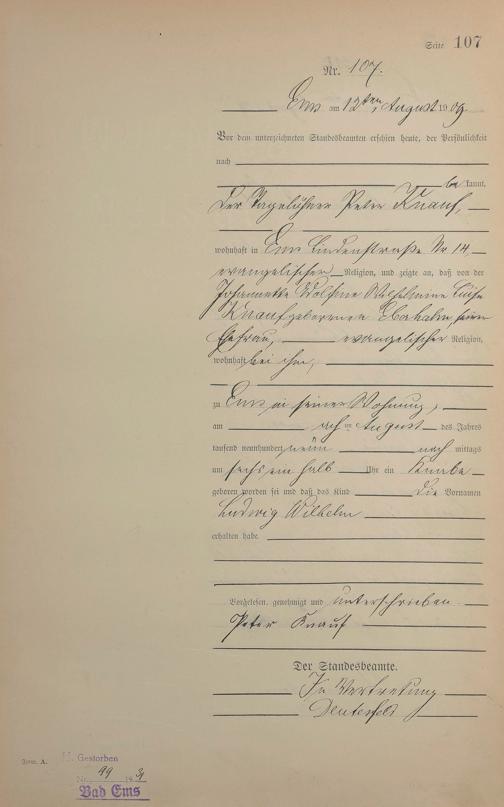 Seite 107
Nr. 107.
Ems am 12ten August 1909
Vor dem unterzeichneten Standesbeamten erschien heute, der Persönlichkeit
nach
be kannt,
der Tagelöhner Peter Knauf,
wohnhaft in Ems Lindenstraße Nr 14
evangelischer Religion, und zeigte an, daß von der
Johannette Wilhelmine Luise
Knauf geborenen seiner
Ehefrau, evangelischer Religion,
wohnhaft bei ihm,
zu Ems in seiner Wohnung,
am August des Jahres
tausend neunhundert neun nach mittags
um sechs ein halb Uhr ein Knabe
geboren worden sei und daß das Kind die Vornamen
Ludwig Wilhelm
erhalten habe.
Vorgelesen, genehmigt und unterschrieben
Peter Knauf
Der Standesbeamte.
In Vertretung
Form. A.
Gestorben
Nr. 99 19
Bad Ems